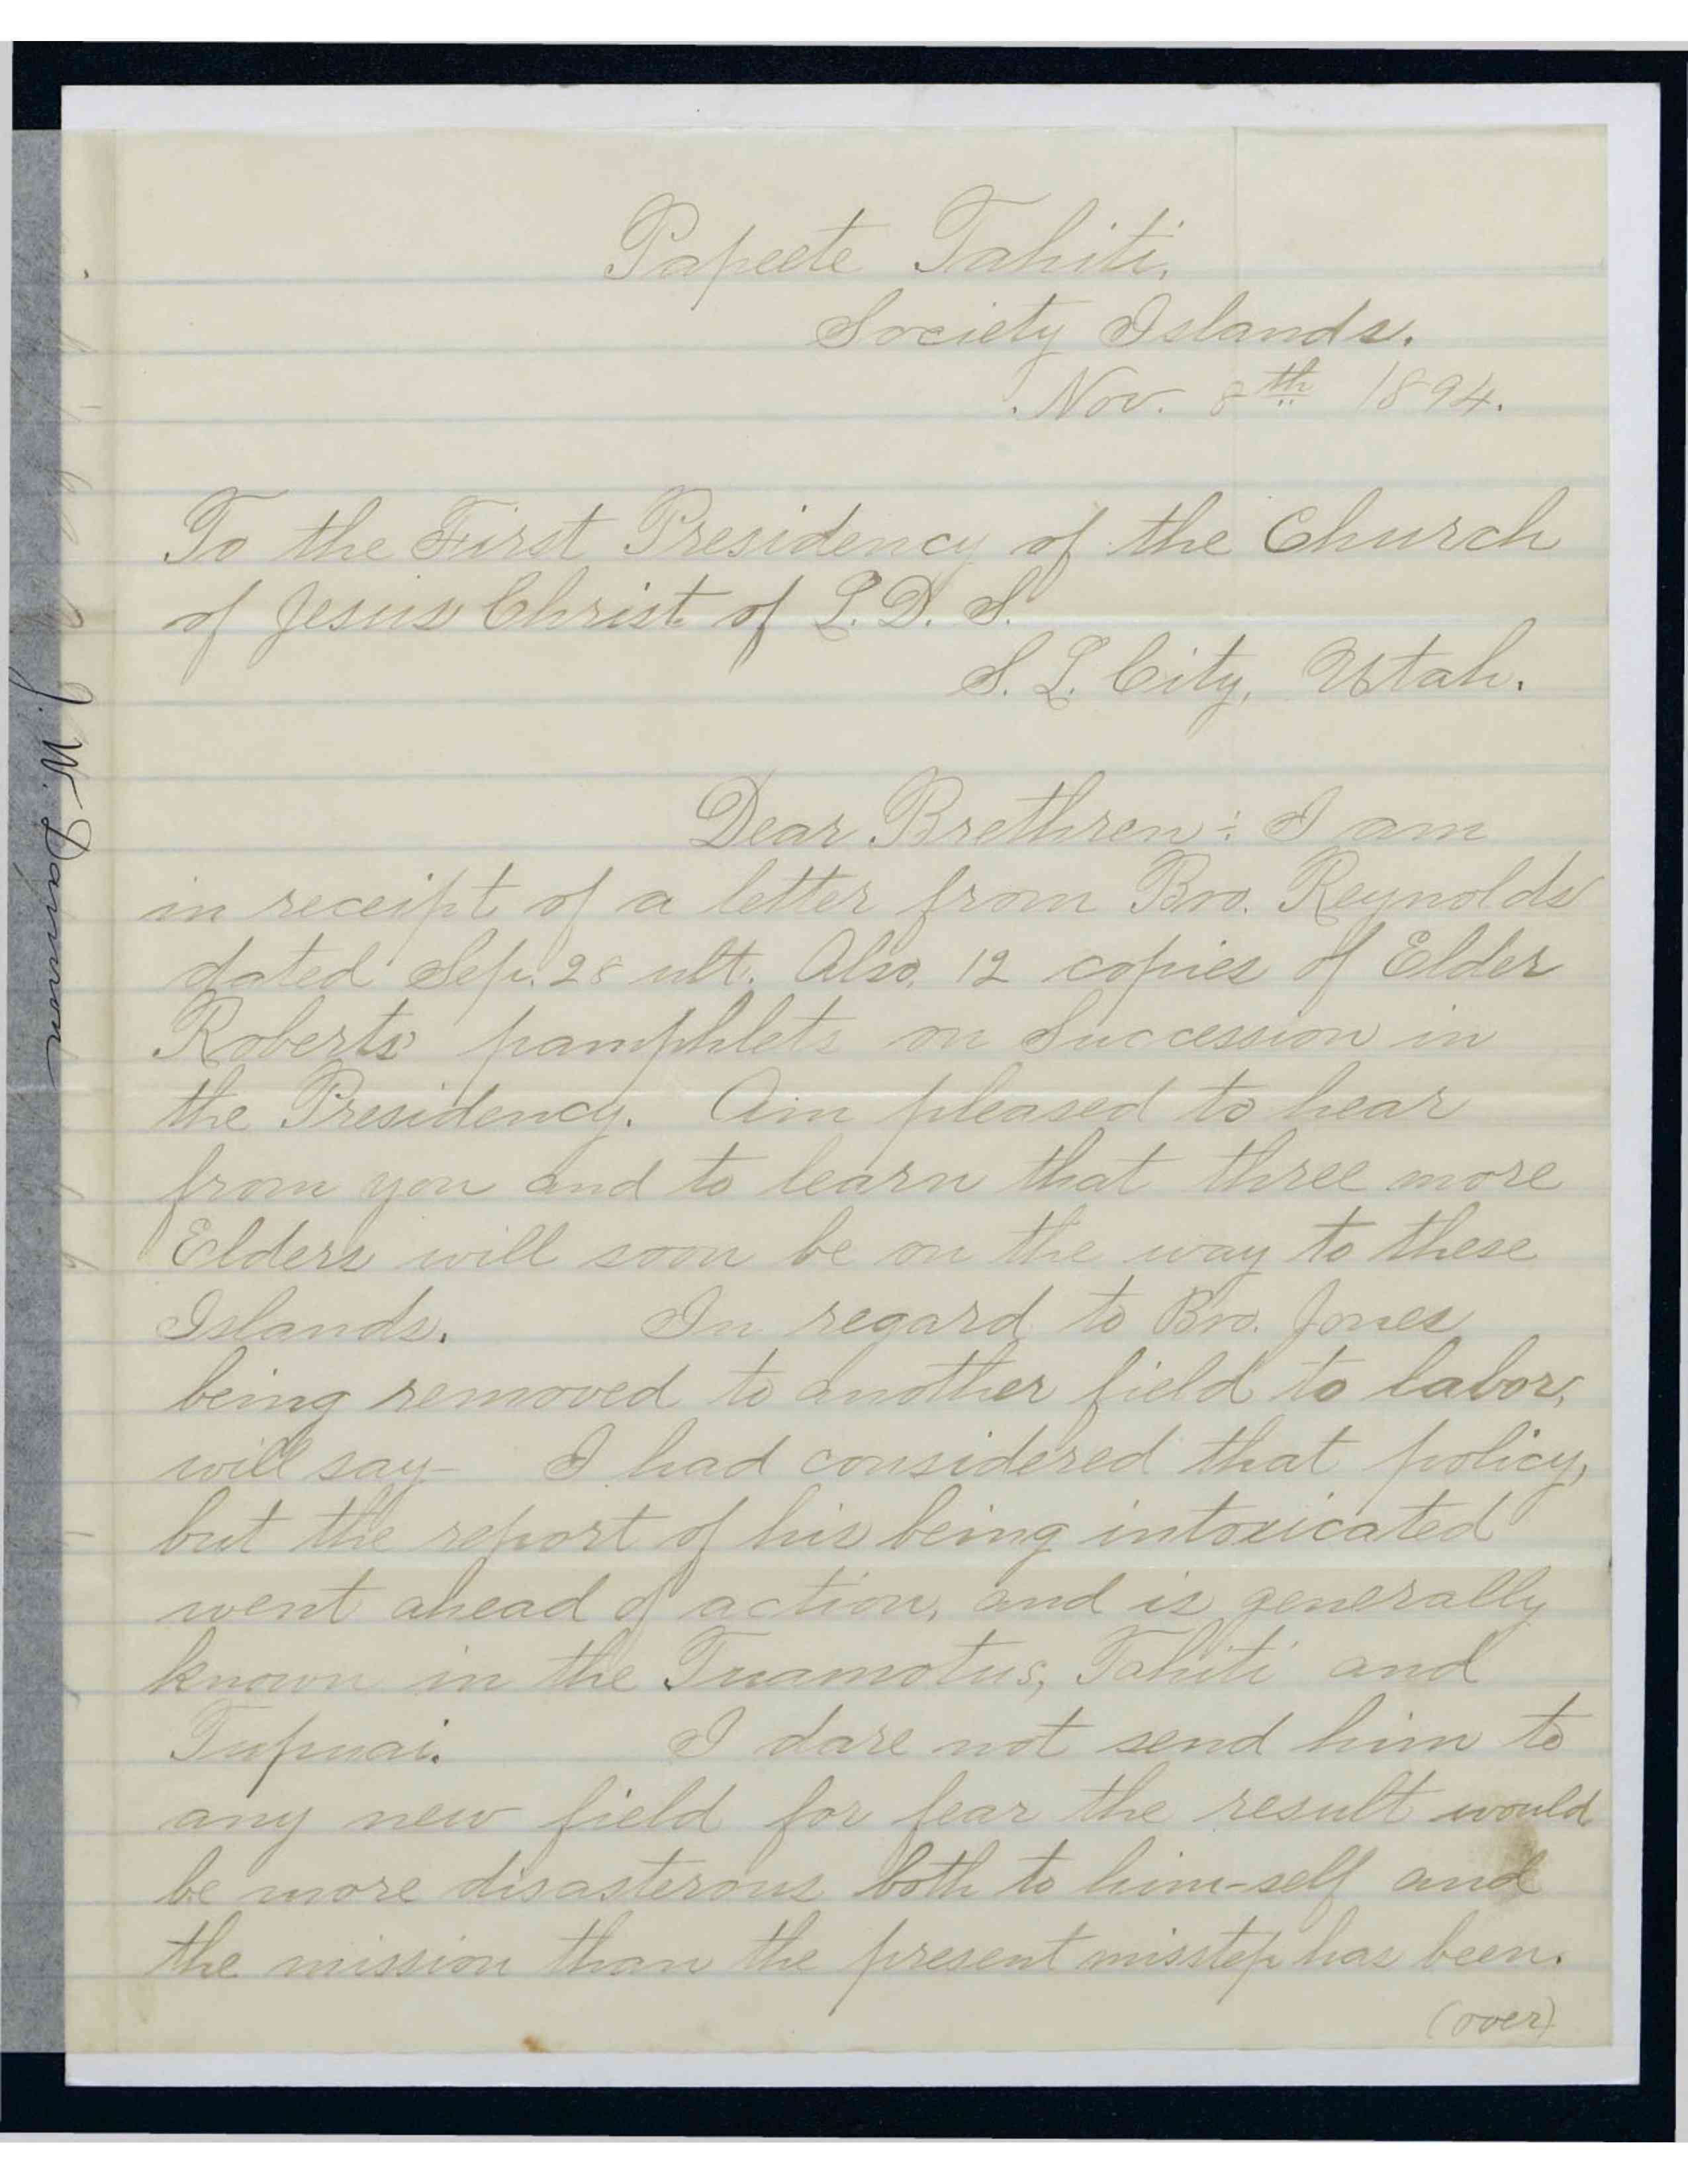 Papeete Tahiti,
Society Islands.
Nov. 8th 1894.
To the First Presidency of the Church
of Jesus Christ of L. D. S.
S. L. City, Utah.
Dear Brethren: I am
in receipt of a letter from Bro. Reynolds
dated Sep. 28 ult. Also, 12 copies of Elder
Roberts' pamphlets on Succession in
the Presidency. Am pleased to hear
from you and to learn that three more
Elders will soon be on the way to these
Islands. In regard to Bro. Jones
being removed to another field to labor,
will say - I had considered that policy,
but the report of his being intoxicated
went ahead of action, and is generally
known in the Tuamotus, Tahiti and
Tupuai. I dare not send him to
any new field for fear the result would
be more disasterous both to him-self and
the mission than the present misstep has been.
(over)
J. W. Damron